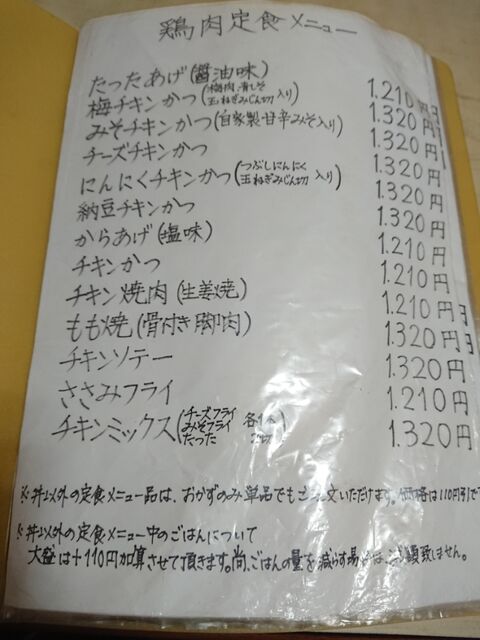 鶏肉定食メニュー
たったあげ(醤油味) 1.210円
梅チキンかつ(梅肉、青しそ 玉ねぎみじん切 入り) 1.320円
みそチキンかつ(自家製・甘辛みそ入り) 1.320円
チーズチキンかつ 1.320円
にんにくチキンかつ(つぶしにんにく 玉ねぎみじん切 入り) 1.320円
納豆チキンかつ 1.320円
からあげ(塩味) 1.210円
チキンかつ 1.210円
チキン焼肉(生姜焼) 1.210円
もも焼(骨付き脚肉) 1.320円
チキンソテー 1.320円
ささみフライ 1.210円
チキンミックス(チーズフライ みそフライ たった 各1ヶ) 1.320円
※丼以外の定食メニュー品は、おかずのみ単品でもご注文いただけます。価格は110円引で
※丼以外の定食メニュー中のごはんについて
大盛は+110円加算させて頂きます。尚、ごはんの量を減らす場合は、減額致しません。